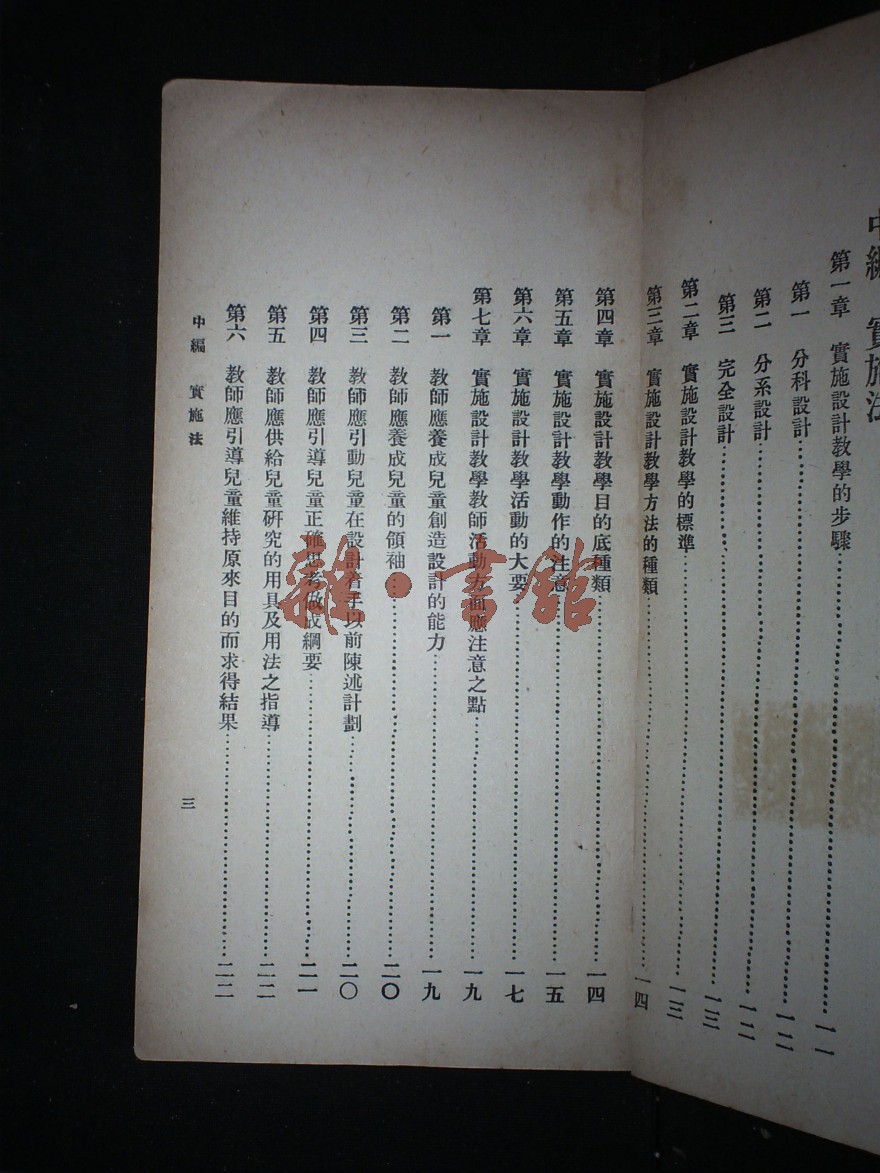 中編 實施法
第一章 實施設計教學的步驟……一一
第一 分科設計……一二
第二 分系設計……一二
第三 完全設計……一三
第二章 實施設計教學的標準……一三
第三章 實施設計教學方法的種類……一四
第四章 實施設計教學目的底種類……一四
第五章 實施設計教學動作的注意……一五
第六章 實施設計教學活動的大要……一七
第七章 實施設計教學教師活動方面應注意之點……一九
第一 教師應養成兒童創造設計的能力……一九
第二 教師應養成兒童的領袖……二〇
第三 教師應引動兒童在設計着手以前陳述計劃……二〇
第四 教師應引導兒童正確思考做成綱要……二一
第五 教師應供給兒童研究的用具及用法之指導……二二
第六 教師應引導兒童維持原來目的而求得結果……二二
中編 實施法
三
雜·書館